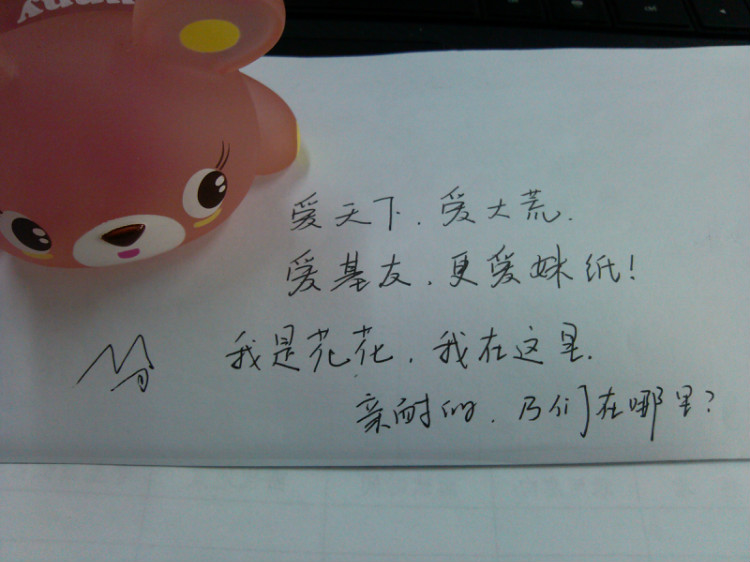 爱天下.爱大荒.
爱基友.更爱妹纸!
我是花花.我在这里.
亲耐的.乃们在哪里?